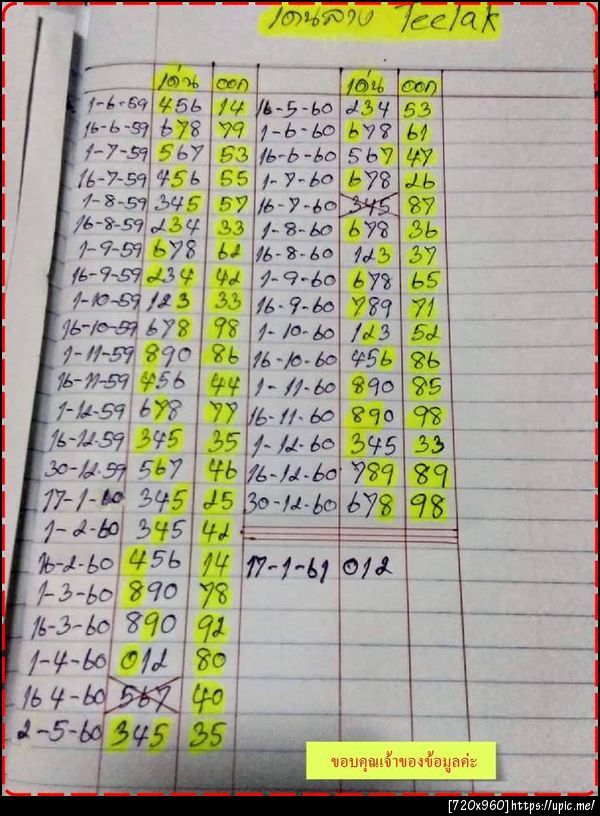 เด่นล่าง Teelak
เด่น ออก เด่น ออก
1-6-59 456 14 16-5-60 234 53
16-6-59 678 79 1-6-60 678 61
1-7-59 567 53 16-6-60 567 47
16-7-59 456 55 1-7-60 678 26
1-8-59 345 57 16-7-60 345 87
16-8-59 234 33 1-8-60 678 36
1-9-59 678 62 16-8-60 123 37
16-9-59 234 42 1-9-60 678 65
1-10-59 123 33 16-9-60 789 71
16-10-59 678 98 1-10-60 123 52
1-11-59 890 86 16-10-60 456 86
16-11-59 456 44 1-11-60 890 85
1-12-59 678 77 16-11-60 890 98
16-12-59 345 35 1-12-60 345 33
30-12-59 567 46 16-12-60 789 89
17-1-60 345 25 30-12-60 678 98
1-2-60 345 42
16-2-60 456 14 17-1-61 012
1-3-60 890 78
16-3-60 890 92
1-4-60 012 80
16 4-60 567 40
2-5-60 345 35
ขอบคุณเจ้าของข้อมูลค่ะ
[720x960]https://upic.me/